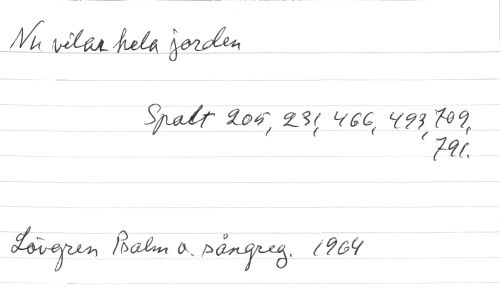 Nu vilar hela jorden
Spalt 205, 231, 466, 493, 709,
791.
Lövgren Psalm o. sångreg. 1964